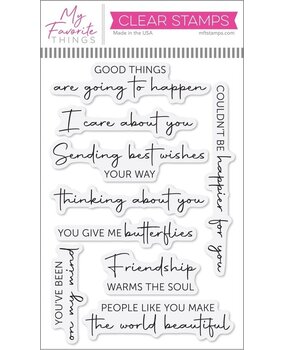 My
Favorite
THINGS
CLEAR STAMPS
Made in the USA
mftstamps.com
GOOD THINGS
are going to happen
I care about you
Sending best wishes
YOUR WAY
thinking about you
YOU GIVE ME butterflies
Friendship
WARMS THE SOUL
PEOPLE LIKE YOU MAKE
the world beautiful
COULDN'T BE happier for you
YOU'VE BEEN
on my mind